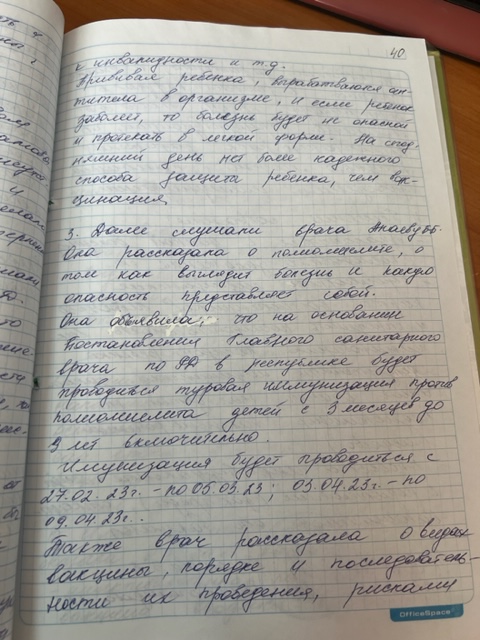 40
к инвалидности и т.д.
Прививая ребенка, вырабатываются ан-
титела в организме, и если ребенок
заболеет, то болезнь будет не опасной
и протекать в легкой форме. На сегод-
няшний день нет более надежного
способа защиты ребенка, чем вак-
цинация.
3. Далее слушали врача
Она рассказала о полиомиелите, о
том как выглядит болезнь и какую
опасность представляет собой.
Она объявила, что на основании
Постановления Главного санитарного
врача по РД в республике будет
проводиться туровая иммунизация против
полиомиелита детей с 3 месяцев до
9 лет включительно.
Имунизация будет проводиться с
27.02.23г. - по 05.03.23; 03.04.23г. - по
09.04.23г..
Также врач рассказала о видах
вакцины, порядке и последователь-
ности их проведения, рисками
OfficeSpace